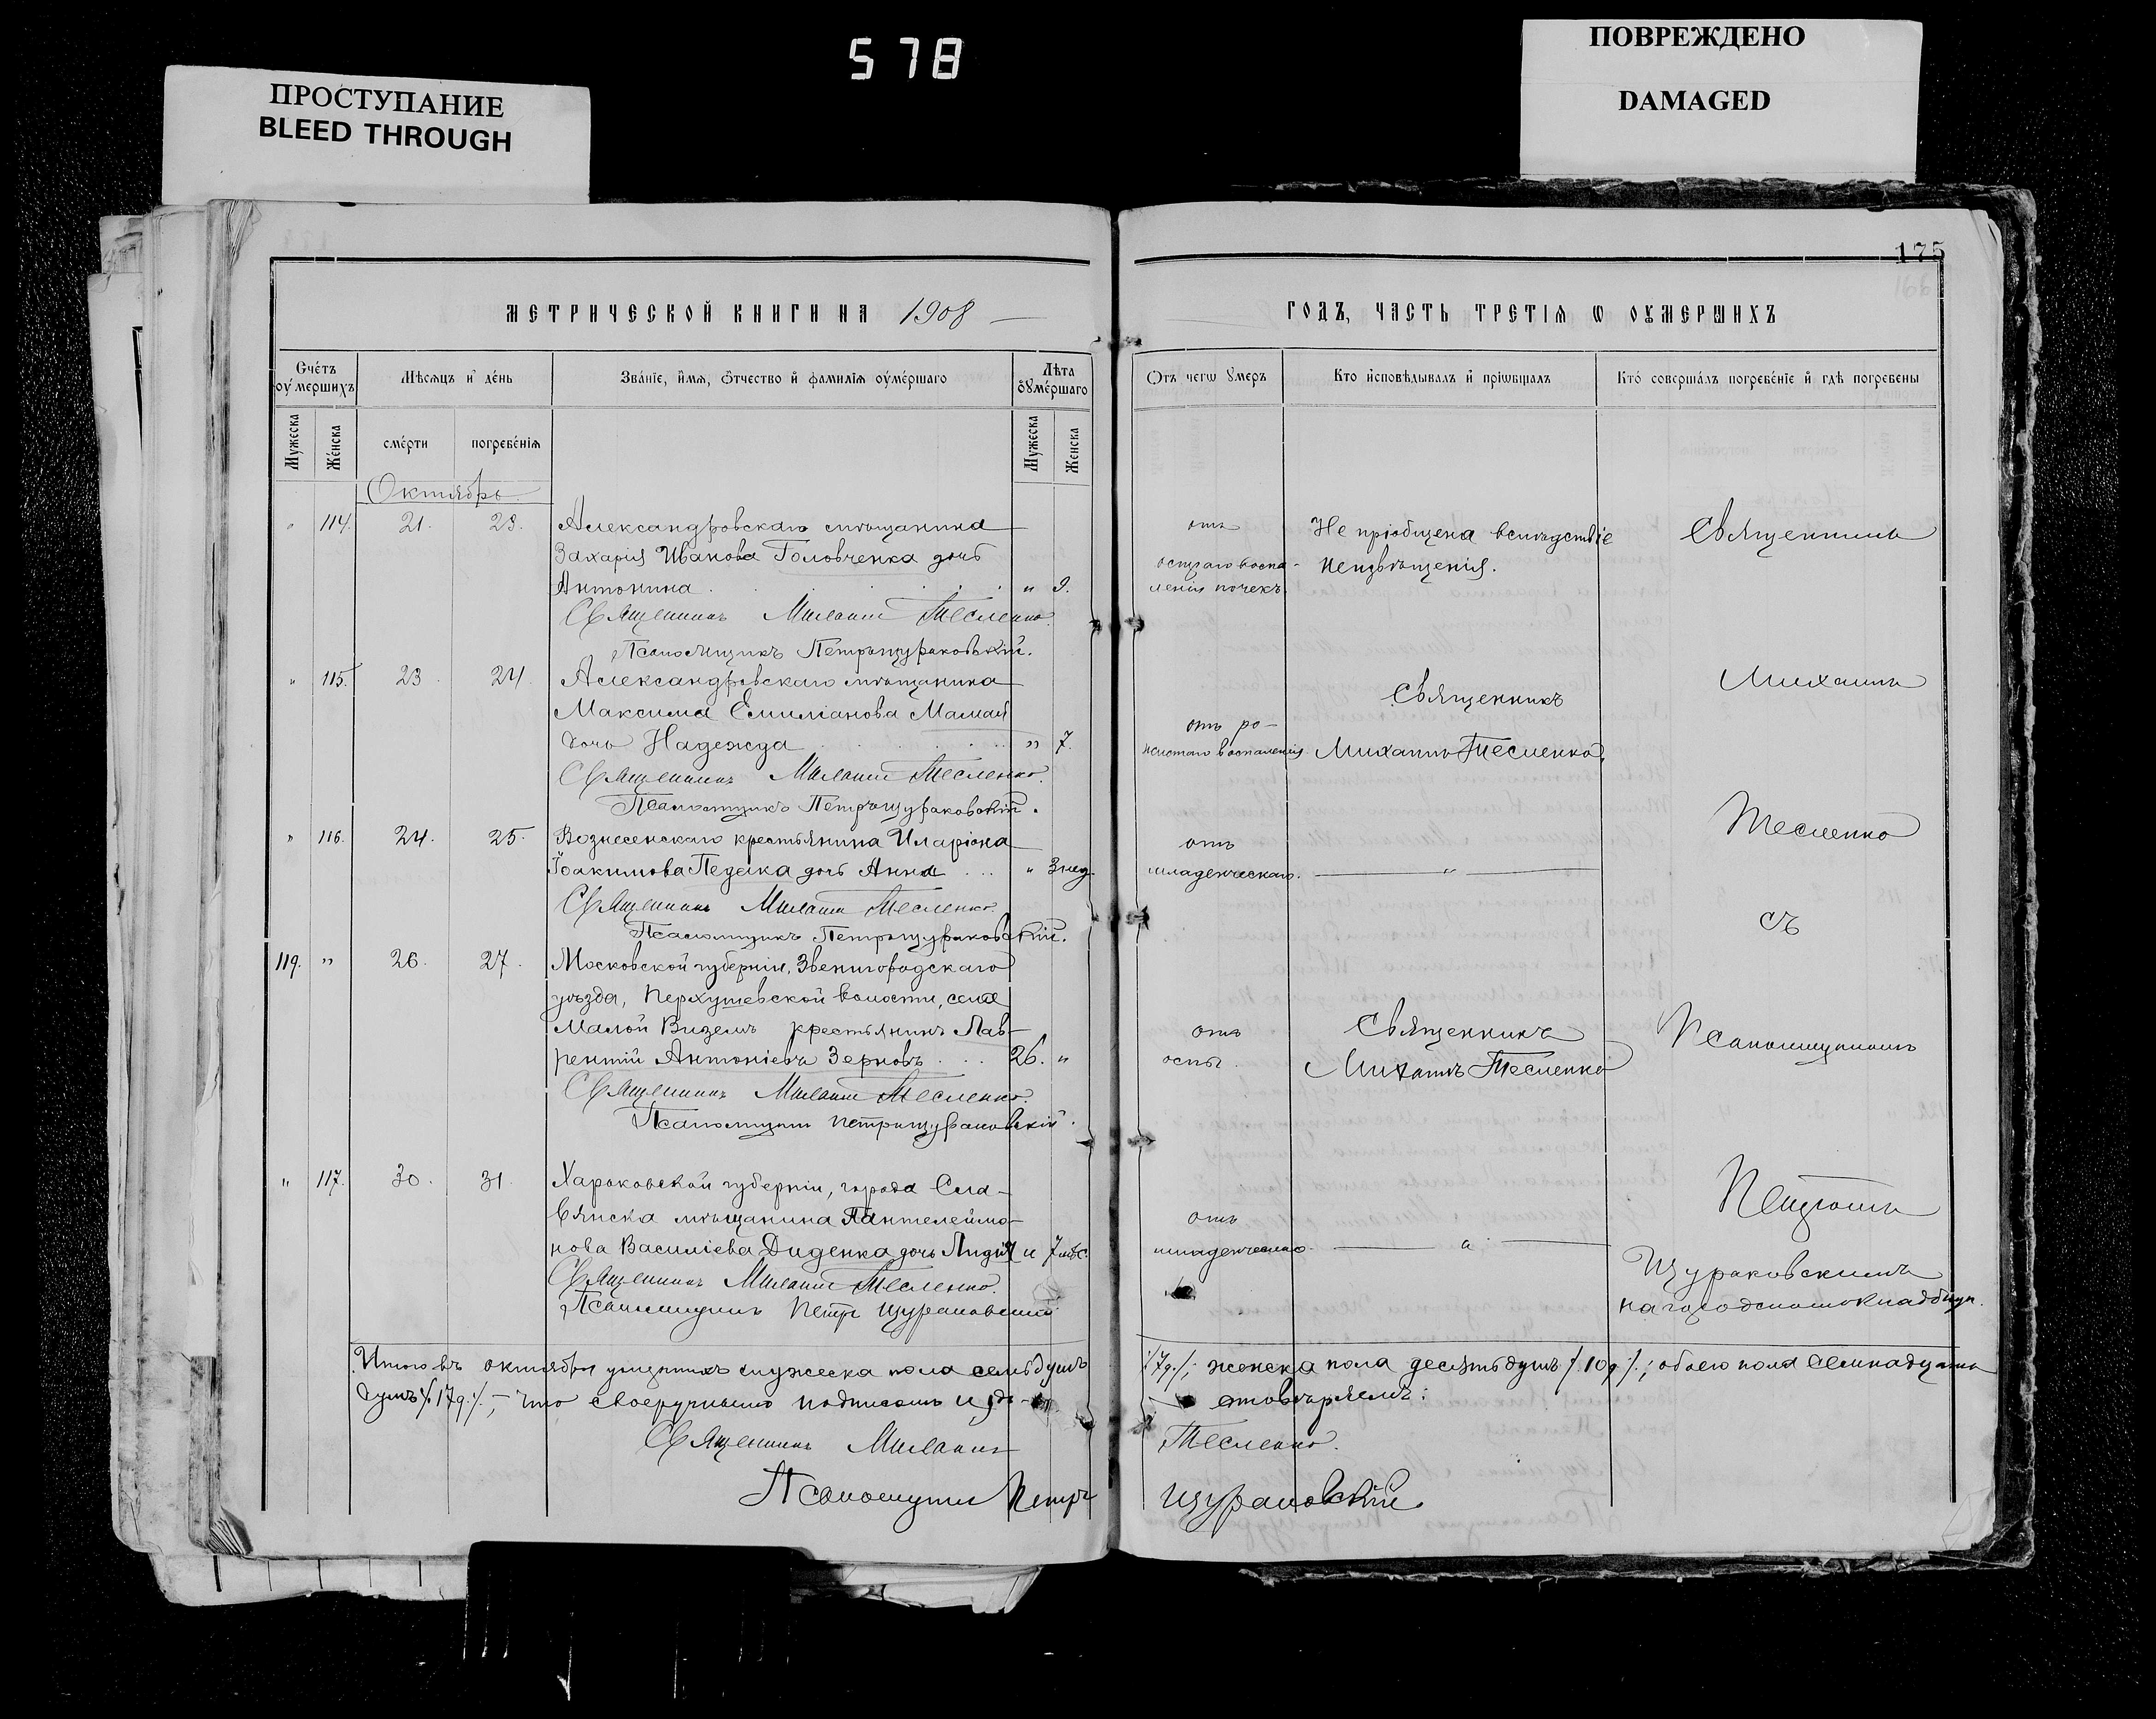 578
ПРОСТУПАНИЕ
BLEED THROUGH
ПОВРЕЖДЕНО
DAMAGED
175
МЕТРИЧЕСКОЙ КНИГИ НА 1908
ГОДЪ, ЧАСТЬ ТРЕТІѦ Ѡ ОУМЕРШИХЪ
Счетъ оумершихъ
Мѣсѧцъ и день
Званіе, имѧ, ѿчество и фамиліѧ оумершаго
Лѣта оумершаго
Отъ чегѡ умеръ
Кто исповѣдывалъ и пріѡбщалъ
Кто совершалъ погребеніе и гдѣ погребены
Мужеска
Женска
смерти
погребеніѧ
Мужеска
Женска
Октябрь
" 114. 21. 23. Александровскаго мѣщанина
Захарія Иванова Головченка дочь
Антонина " 9.
отъ
остраго воспа-
ленія почекъ
Не пріобщена вслѣдствіе
неизвѣщенія.
Священникъ Михаилъ Тесленко.
Псаломщикъ Петръ Щураковскій.
" 115. 23. 24. Александровскаго мѣщанина
Максима Емиліанова Мамая
дочь Надежда " 7.
отъ ро-
жистаго воспаленія
Священникъ
Михаилъ Тесленко.
Священникъ Михаилъ Тесленко.
Псаломщикъ Петръ Щураковскій.
" 116. 24. 25. Вознесенскаго крестьянина Иларіона
Іоакимова дочь Анна " 3 нед.
отъ
младенческаго. "
Священникъ Михаилъ Тесленко.
Псаломщикъ Петръ Щураковскій.
119. " 26. 27. Московской губерніи, Звенигородскаго
уѣзда, Перхушевской волости, села
Малой Вяземъ крестьянинъ Лав-
рентій Антоніевъ Зерновъ 26. "
отъ
оспы.
Священникъ
Михаилъ Тесленко
Священникъ Михаилъ Тесленко.
Псаломщикъ Петръ Щураковскій.
" 117. 30. 31. Харьковской губерніи, города Сла-
вянска мѣщанина Пантелеймо-
нова Василіева Диденка дочь Лидія " 7 мѣс.
отъ
младенческаго. "
Священникъ Михаилъ Тесленко.
Псаломщикъ Петръ Щураковскій
Священникомъ
Михаиломъ
Тесленко
съ
Псаломщикомъ
Петромъ
Щураковскимъ
на городскомъ кладбищѣ.
Итого въ октябрѣ умершихъ мужеска пола семь душъ
/:7д:/, женска пола десять душъ /:10д:/; обоего пола семнадцать
душъ /:17д:/, – что своеручнымъ подписомъ и удо-
стовѣряемъ:
Священникъ Михаилъ
Тесленко.
Псаломщикъ Петръ
Щураковскій.